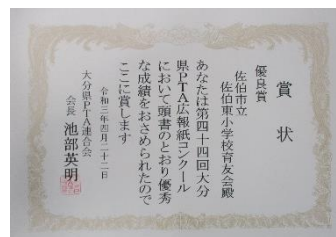 賞状
優良賞
佐伯市立
佐伯東小学校育友会殿
あなたは第四十四回大分
県PTA広報紙コンクール
において頭書のとおり優秀
な成績をおさめられたので
ここに賞します
令和三年四月二十二日
大分県PTA連合会
会長 池部英明